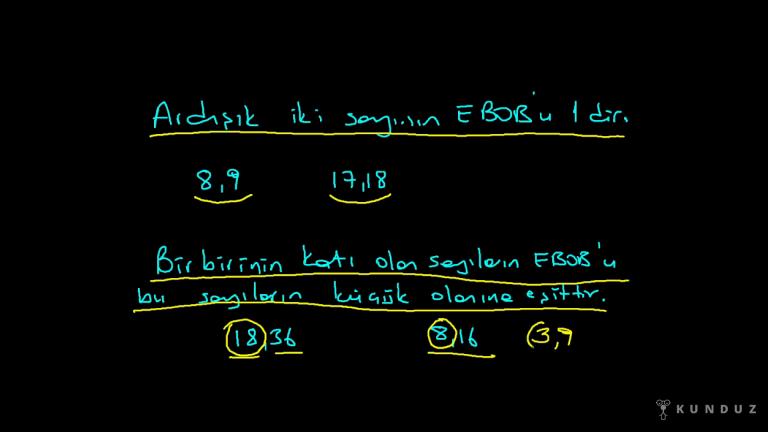 Ardışık iki sayının EBOB'u 1 dir.
8,9 17,18
Birbirinin katı olan sayıların EBOB'u
bu sayıların küçük olanına eşittir.
18,36 8,16 (3,9
KUNDUZ